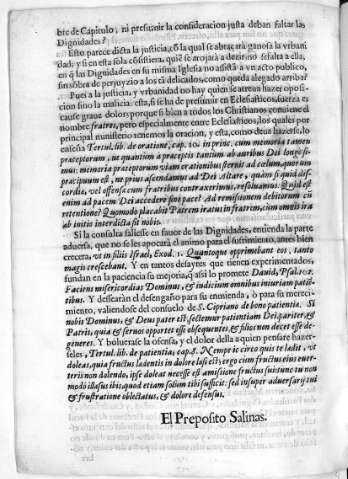 bre de Capitulo, ni presumir la consideracion justa deban faltar las
Dignidades?
Esto parece dicta la justicia, cō la qual se abraça gañosa la vrbani
dad, y si en esta sola cōsistiera, quiē se arojarà a dezir, no falta a ella,
en q̃ las Dignidades en su misma Iglesia no assistā a vn acto publico,
sin sōbra de perjuyzio a los tā delicados, como queda alegado arriba?
Pues a la justicia, y vrbanidad no hay quien se atreua hazer oposi-
cion sino la malicia: esta, si se ha de presumir en Eclesiasticos, fuerça es
cause graue dolor; porque si bien a todos los Christianos conuiene el
nombre fratres, pero especialmente entre Eclesiasticos, los quales por
principal ministerio tenemos la oracion, y esta, como deua hazerse, lo
enseña Tertul. lib. de oratione, cap. 10. in princ. cum memoria tamen
præceptorum, ne quantum à præceptis tantum ab auribus Dei longè si-
mus: memoria præceptorum viam orationibus sternit ad cœlum, quorum
præcipuum est, ne prius ascendamus ad Dei Altare, quàm si quid dis-
cordiæ, vel offensæ cum fratribus contraxerimus, resoluamus. Quid est
enim ad pacem Dei accedere sine pace? Ad remissionem debitorum cū
retentione? Quomodo placabit Patrem iratus in fratrem, cùm omnis ira
ab initio interdicta sit nobis.
Si la consulta saliesse en fauor de las Dignidades, entienda la parte
aduersa, que no se les apocarà el animo para el sufrimiento, antes bien
crecerà, vt in filijs Israel, Exod. 1. Quantoque opprimebant eos, tanto
magis crescebant. Y en tantos desayres que tienen experimentados,
fundan en la paciencia su mejoria, q̃ assi lo promete Dauid, Psal. 102.
Faciens misericordias Dominus, & iudicium omnibus iniuriam patiē-
tibus. Y dessearàn el desengaño para su enmienda, ò para su mereci-
miento, valiendose del consuelo de S. Cipriano de bono patientiæ. Si
nobis Dominus, & Deus pater est: sectemur patientiam Dei pariter, &
Patris, quia & seruos oportet esse obsequentes, & filios non decet esse de-
generes. Y boluerase la ofensa, y el dolor della a quien pensare hazer-
seles, Tertul. lib. de patientia, cap. 8. Nempè ic circo quis te lædit, vt
doleas, quia fructus lædentis in dolore læsi est: ergo cùm fructus eius euer-
teris non dolendo, ipse doleat necesse est amissione fructus sui: tunc tu non
modò illæsus ibis, quod etiam solum tibi sufficit: sed insuper aduersarij tui
& frustratione oblectatus, & dolore defensus.
El Preposito Salinas.